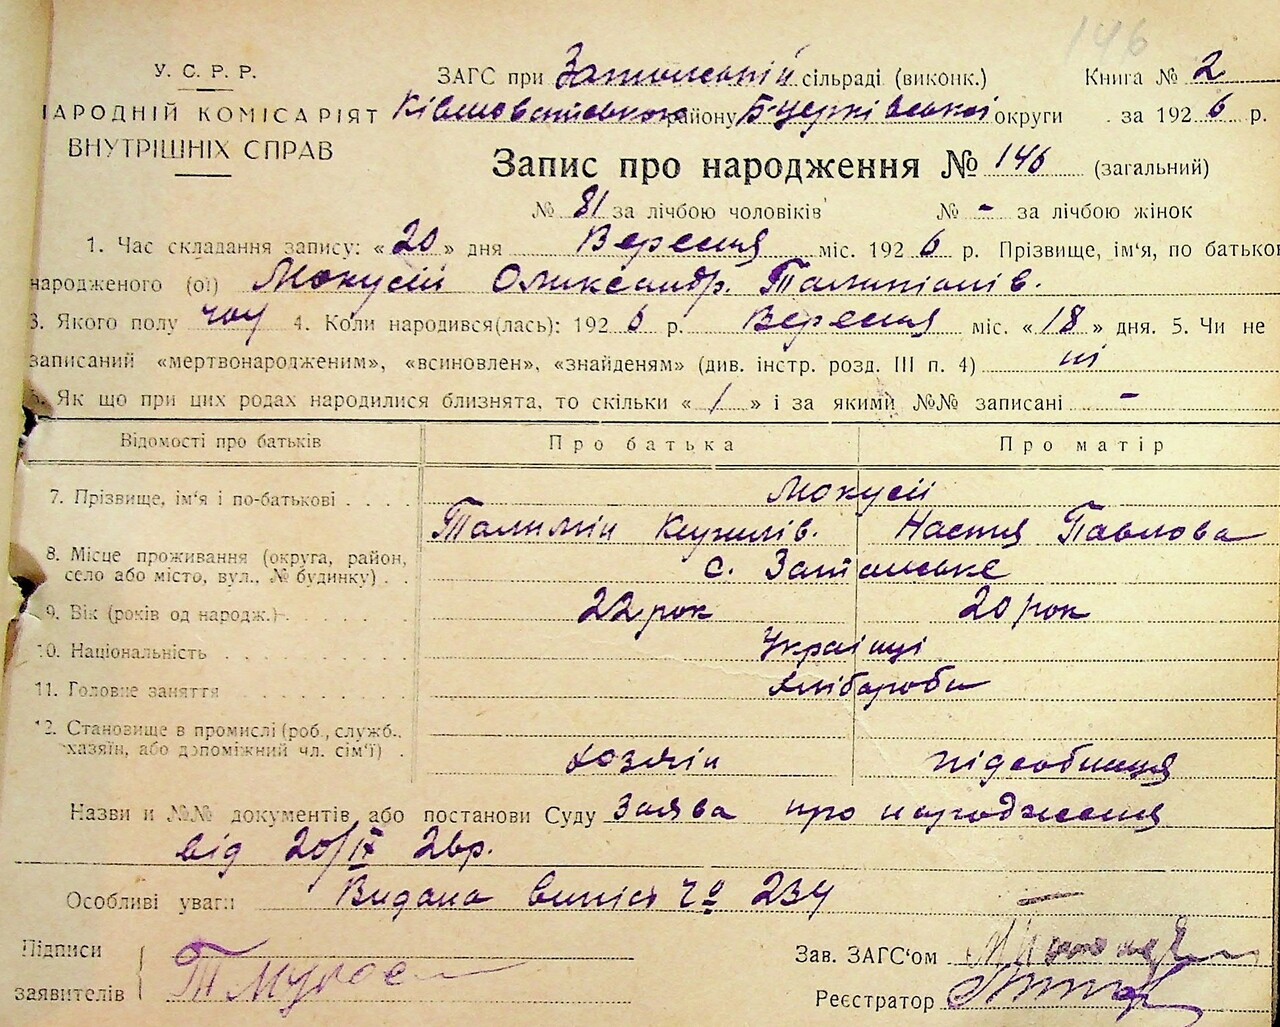 146
У. С. Р. Р.
НАРОДНІЙ КОМІСАРІЯТ
ВНУТРІШНІХ СПРАВ
ЗАГС при Затонській сільраді (виконк.) Книга № 2
району Б-Церківської округи за 1926 р.
Запис про народження № 146 (загальний)
№ 81 за лічбою чоловіків № - за лічбою жінок
1. Час складання запису: «20» дня Вересня міс. 1926 р. Прізвище, ім'я, по батьков
народженого (ої) Мокусій Олександр.
3. Якого полу чол 4. Коли народився(лась): 1926 р. Вересня міс. «18» дня. 5. Чи не
записаний «мертвонародженим», «всиновлен», «знайденям» (див. інстр. розд. III п. 4) ні
6. Як що при цих родах народилися близнята, то скільки «1» і за якими №№ записані -
Відомості про батьків Про батька Про матір
7. Прізвище, ім'я і по-батькові Мокусій
Настя Павлова
8. Місце проживання (округа, район,
село або місто, вул., № будинку) с. Затонське
9. Вік (років од народж.) 22 рок 20 рок
10. Національність Українці
11. Головне заняття Хлібароби
12. Становище в промислі (роб., служб.,
хазяїн, або допоміжний чл. сім'ї) хозяїн підсобниця
Назви и №№ документів або постанови Суду Заява про народження
від 20/IX 26р.
Особливі уваги Видана випись № 234
Підписи
заявителів
Зав. ЗАГС'ом
Реєстратор